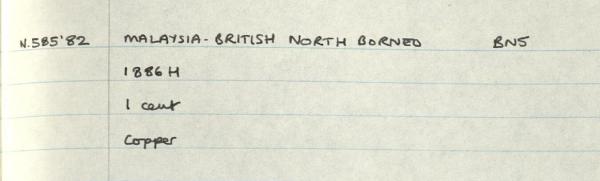 N.585'82 MALAYSIA - BRITISH NORTH BORNEO BN5
1886 H
1 cent
Copper